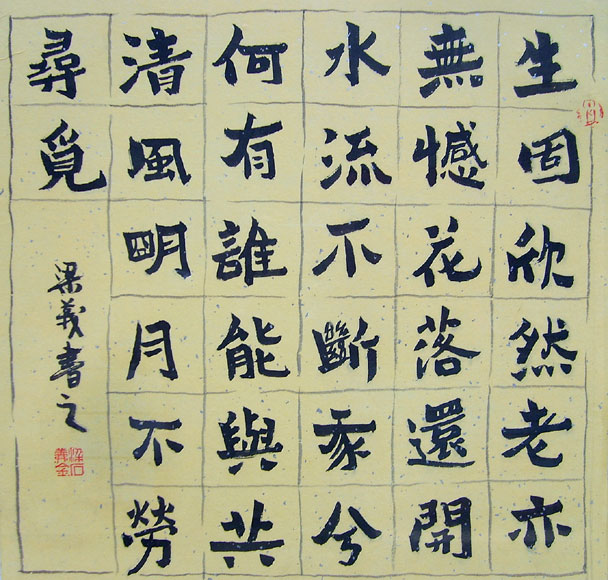 生固欣然老亦
無憾花落還開
水流不斷兮
何有誰能與共
清風朙月不勞
尋覓
梁義書之